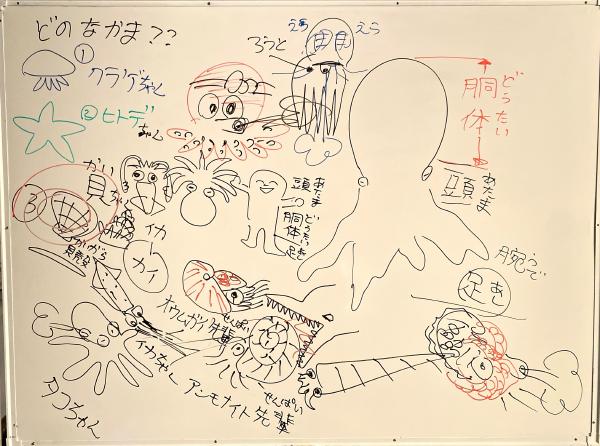 どのなかま??
① クラゲちゃん
② ヒトデ
ちゃん
③
かい
貝ちゃん
かいがら
貝殻
イカ
カイ
イカちゃん
タコちゃん
えら
えら
ろうと
どうたい
胴体
あたま
頭
うで
腕
あし
足
あたま
頭
どうたい
胴体
足
せんぱい
オウムガイ先輩
せんぱい
アンモナイト先輩